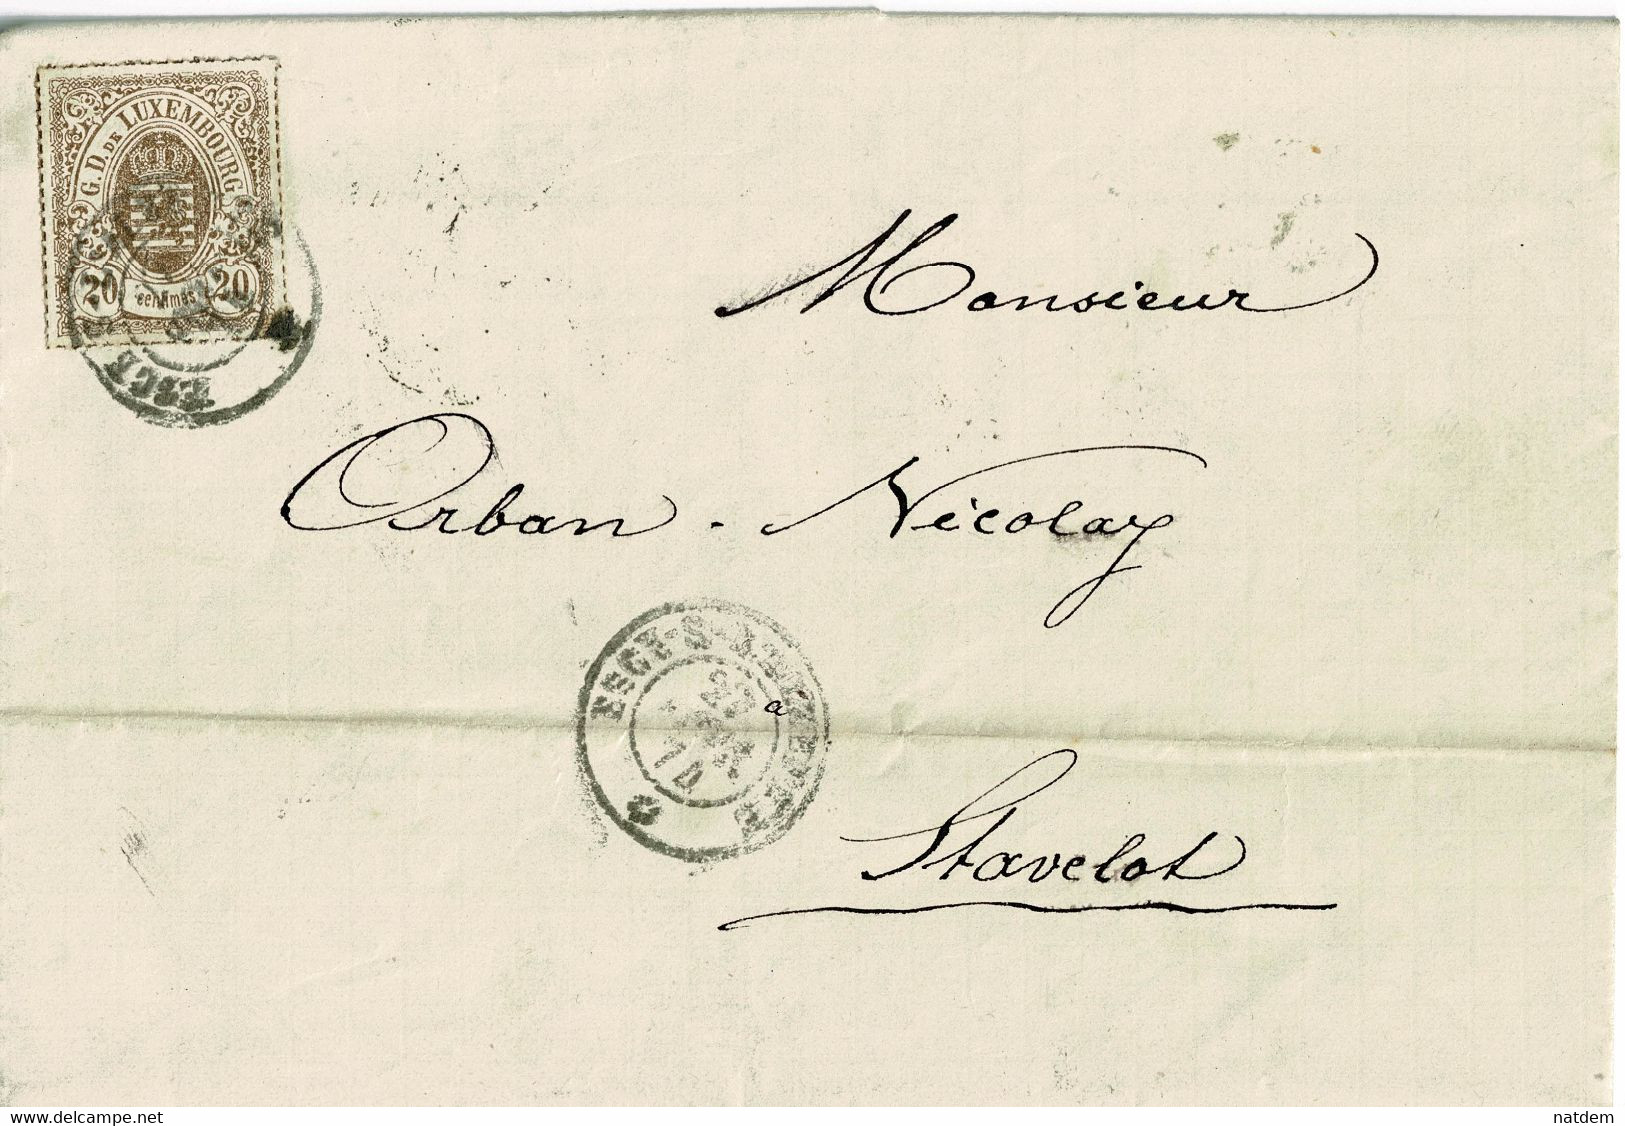 G. D. DE LUXEMBOURG
20 centimes 20
Monsieur
Orban - Nicolay
ESCH-S-ALZETTE
22
à
Stavelot
www.delcampe.net
natdem